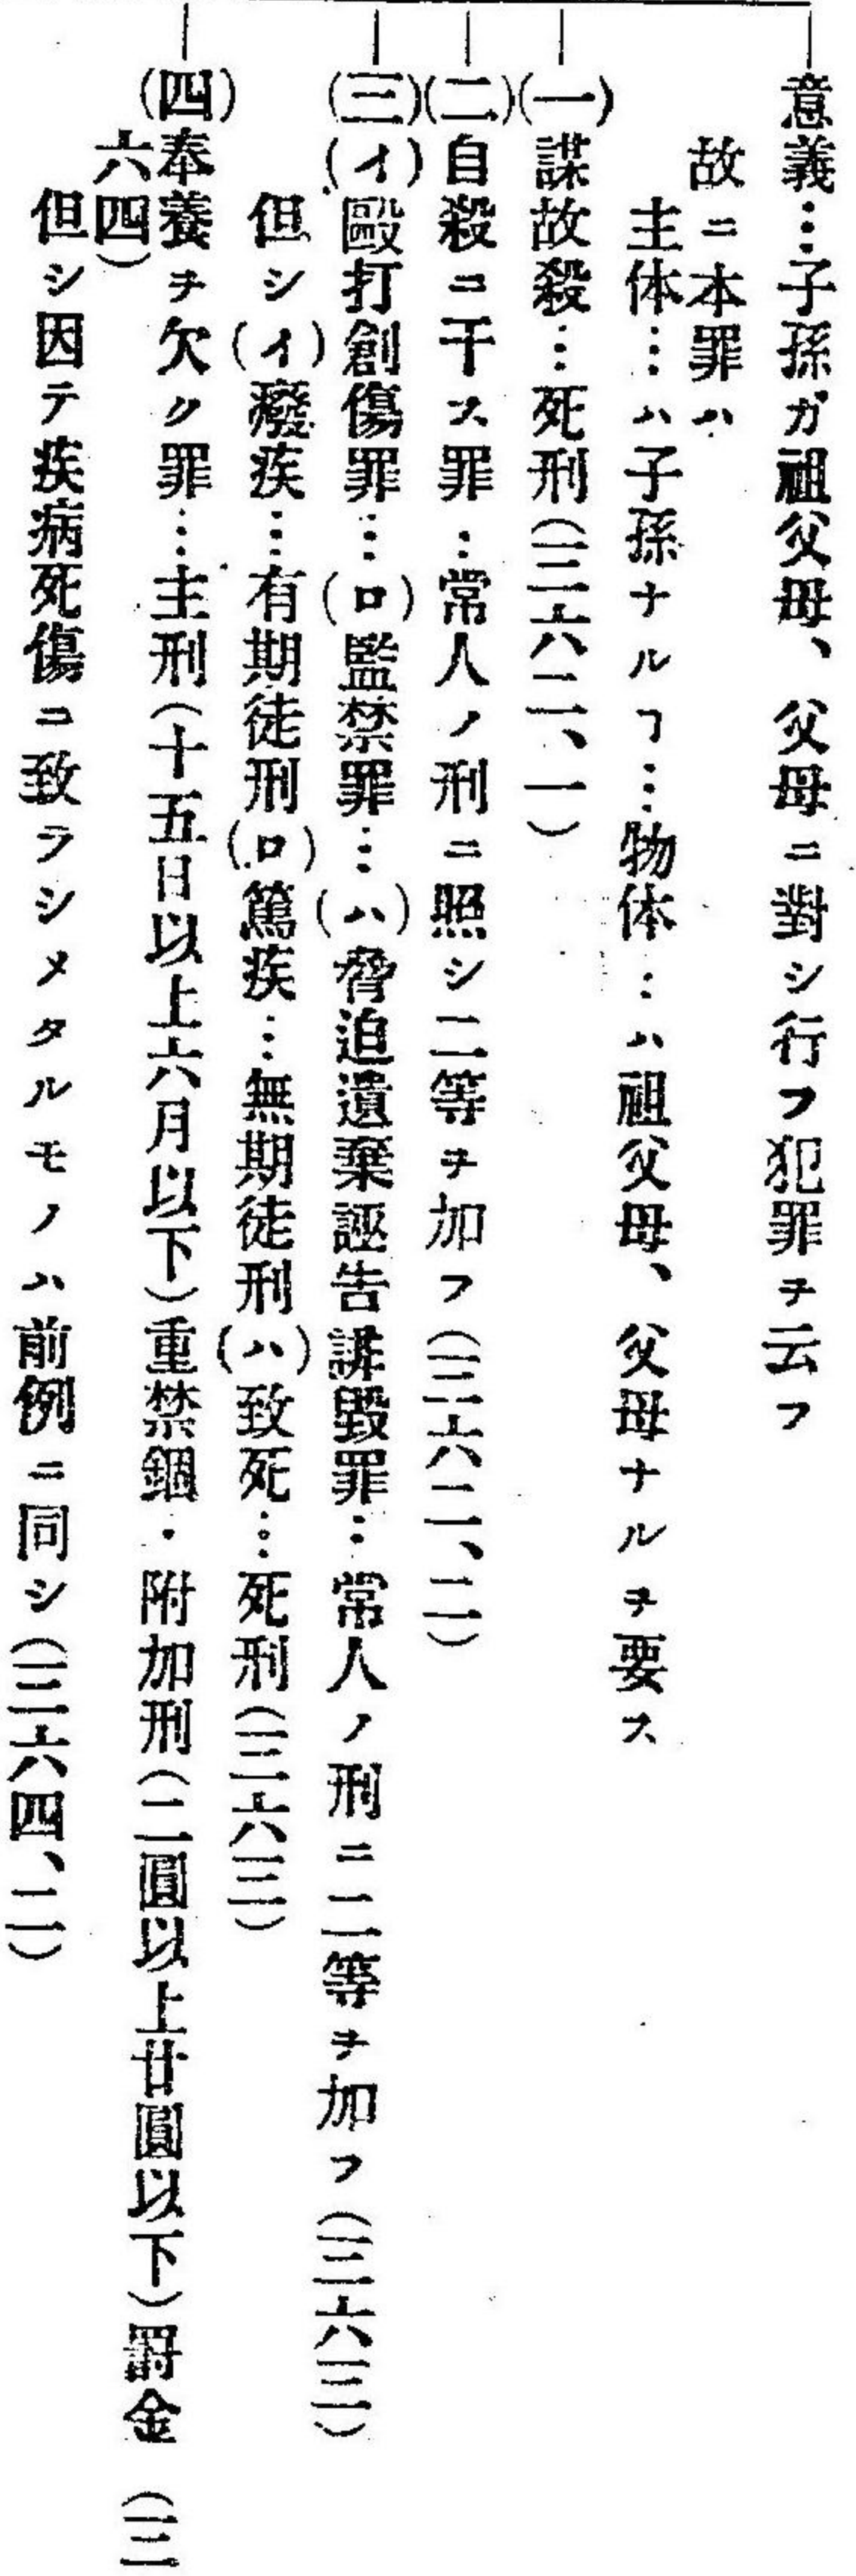 意義…子孫ガ祖父母、父母ニ對シ行フ犯罪ヲ云フ
故ニ本罪ハ
主体…ハ子孫ナルヿ…物体…ハ祖父母、父母ナルヲ要ス
(一)謀故殺…死刑(三六二、一)
(二)自殺ニ干ス罪…常人ノ刑ニ照シ二等ヲ加フ(三六二、二)
(三)(イ)毆打創傷罪…(ロ)監禁罪…(ハ)脅迫遺棄誣告誹毀罪…常人ノ刑ニ二等ヲ加フ(三六三)
但シ(イ)癈疾…有期徒刑(ロ)篤疾…無期徒刑(ハ)致死…死刑(三六三)
(四)奉養ヲ欠ク罪…主刑(十五日以上六月以下)重禁錮・附加刑(二圓以上廿圓以下)罸金(三
六四)
但シ因テ疾病死傷ニ致ラシメタルモノハ前例ニ同シ(三六四、二)